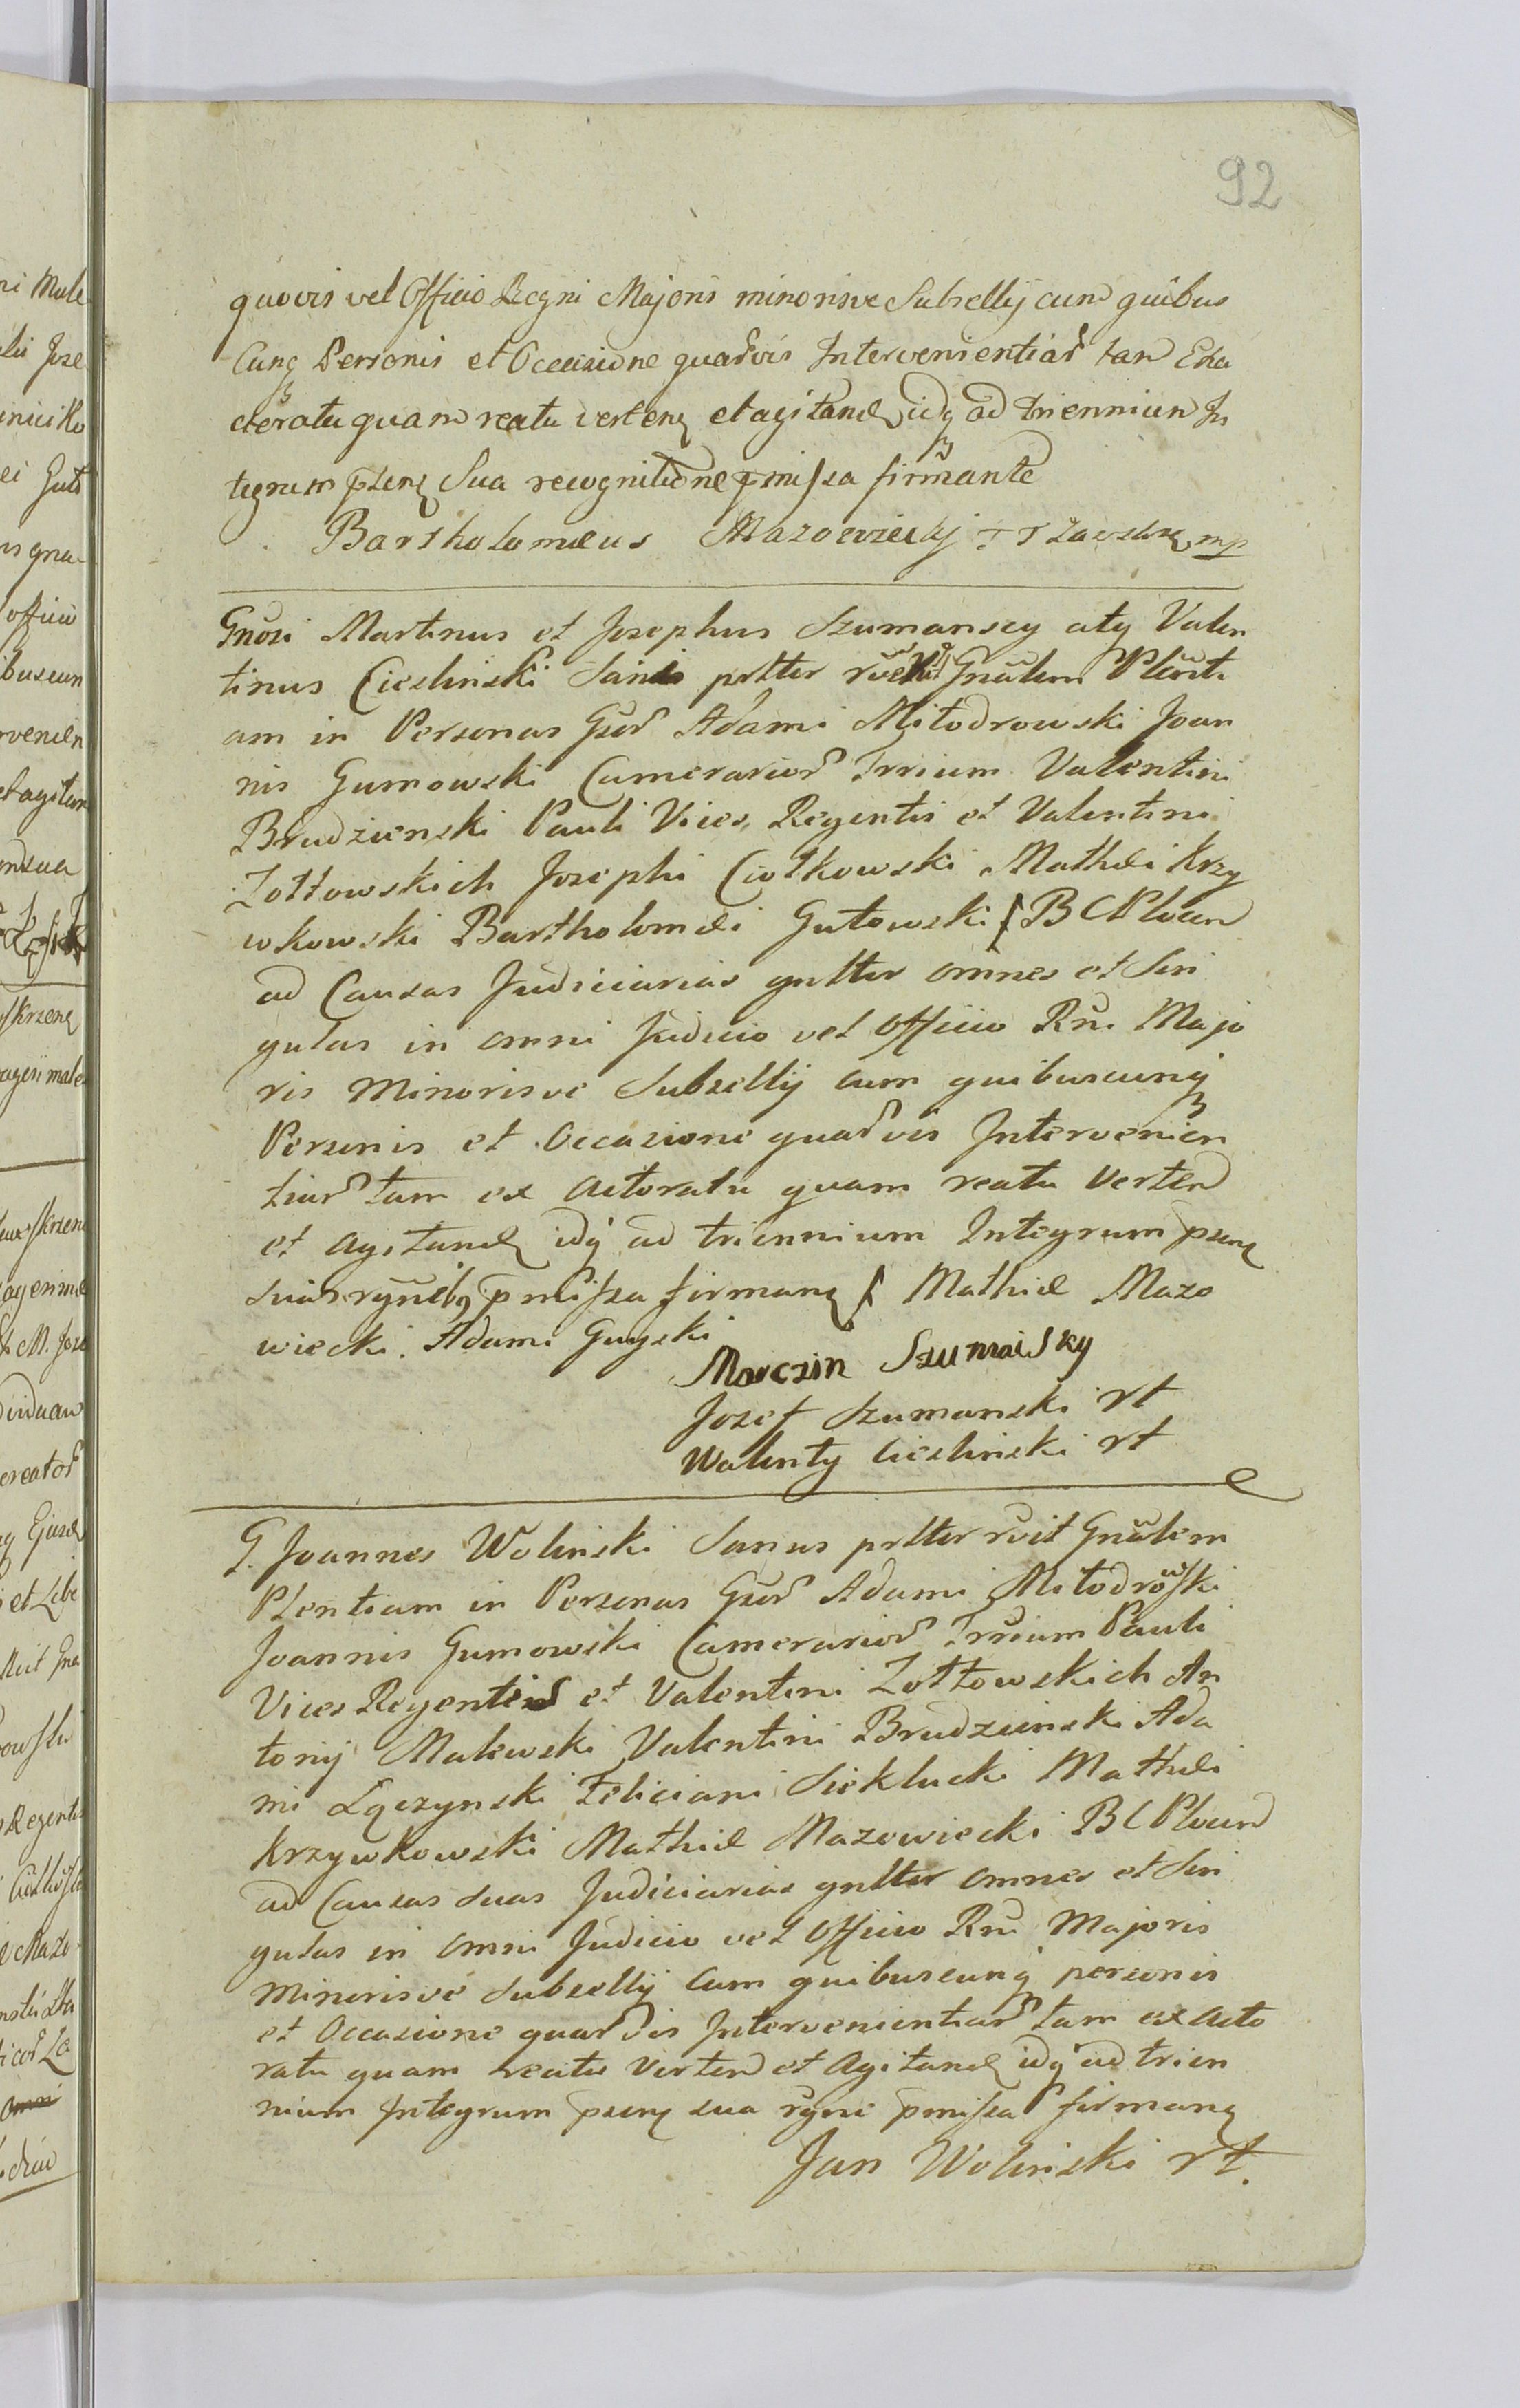 92
quovis vel Officio Regni Majoris minorisve Subsellij cum quibus
Cunq Personis et Occasione quarvis Intervenientiar tam Exa
ctoratu quam reatu verten et agitand idq ad triennium In
tegrum psens Sua recognitione pmissa firmante
Bartholomeus Mazowieckj mp
Gnosi Martinus et Josephus Szumanscy atq Valen
tinus Cieslinski Sani pltter Gnalem Plenti
am in Personas Gsor Adami Miłodrowski Joan
nis Gumowski Camerarior Trrium Valentini
Brudzienski Pauli Vices Regentis et Valentini
Zołtowskich Josephi Ciołkowski Mathei Krzy
wkowski Bartholomei Gutowski BCPluand
ad Causas Judiciarias gnltter omnes et Sin
gulas in omni Judicio vel Officio Rni Majo
ris Minorisve Subsellij cum quibuscunq
Personis et Occasione quarvis Intervenien
tiar tam ex actoratu quam reatu Verten
et agitand idq ad triennium Integrum psens
suis pmissa firmans Mathie Mazo
wiecki. Adami Guyski
Marczin Szumaisky
Jozef Szumanski rt
Walenty Cieslinski rt
G. Joannes Wolinski Sanus pltter rvit Gnalem
Plentiam in Personas Gsor Adami Miłodrowski
Joannis Gumowski Camerarior Trrium Pauli
Vices Regentis et Valentini Zołtowskich An
tonij Malewski Valentini Brudzienski Ada
mi Łączynski Feliciani Sieklucki Mathei
Krzywkowski Mathie Mazowiecki BCPluand
ad Causas Suas Judiciarias gnltter omnes et Sin
gulas in omni Judicio vel Officio Rni Majoris
Minorisve Subsellij Cum quibuscunq personis
et Occasione quarvis Intervenientiar tam ex acto
ratu quam reatu Verten et Agitand idq ad trien
nium Integrum psens sua rgne pmissa firmans
Jan Wolinski rt.